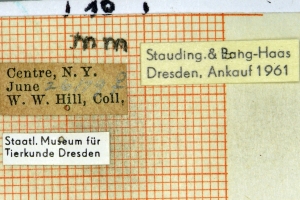 10
mm
Centre, N. Y.
June
W. W. Hill, Coll.
Stauding. & Bang-Haas
Dresden, Ankauf 1961
Staatl. Museum für
Tierkunde Dresden